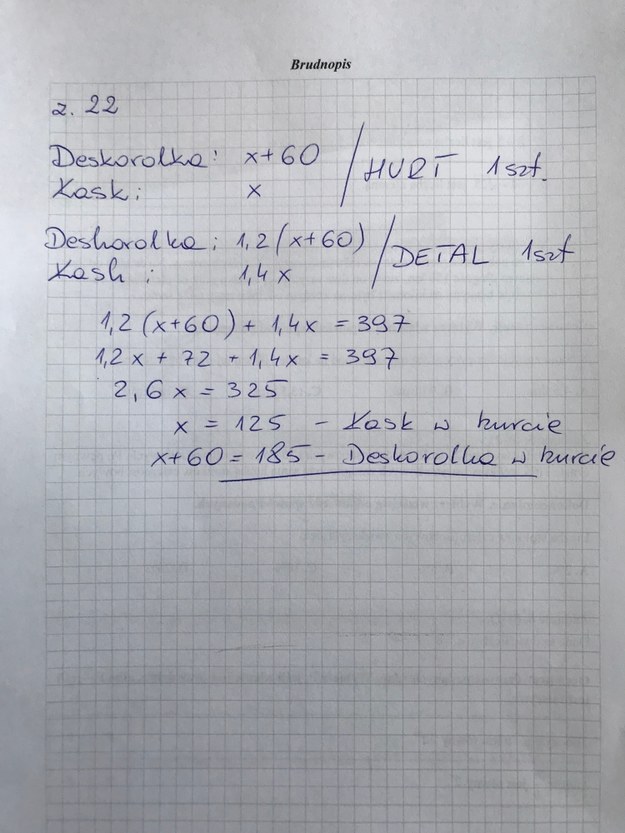 Brudnopis
z. 22
Deskorolka: x+60 / HURT 1 szt.
Kask: x
Deskorolka: 1,2(x+60) / DETAL 1szt
Kask: 1,4x
1,2(x+60) + 1,4x = 397
1,2x + 72 + 1,4x = 397
2,6x = 325
x = 125 - Kask w hurcie
x+60 = 185 - Deskorolka w hurcie